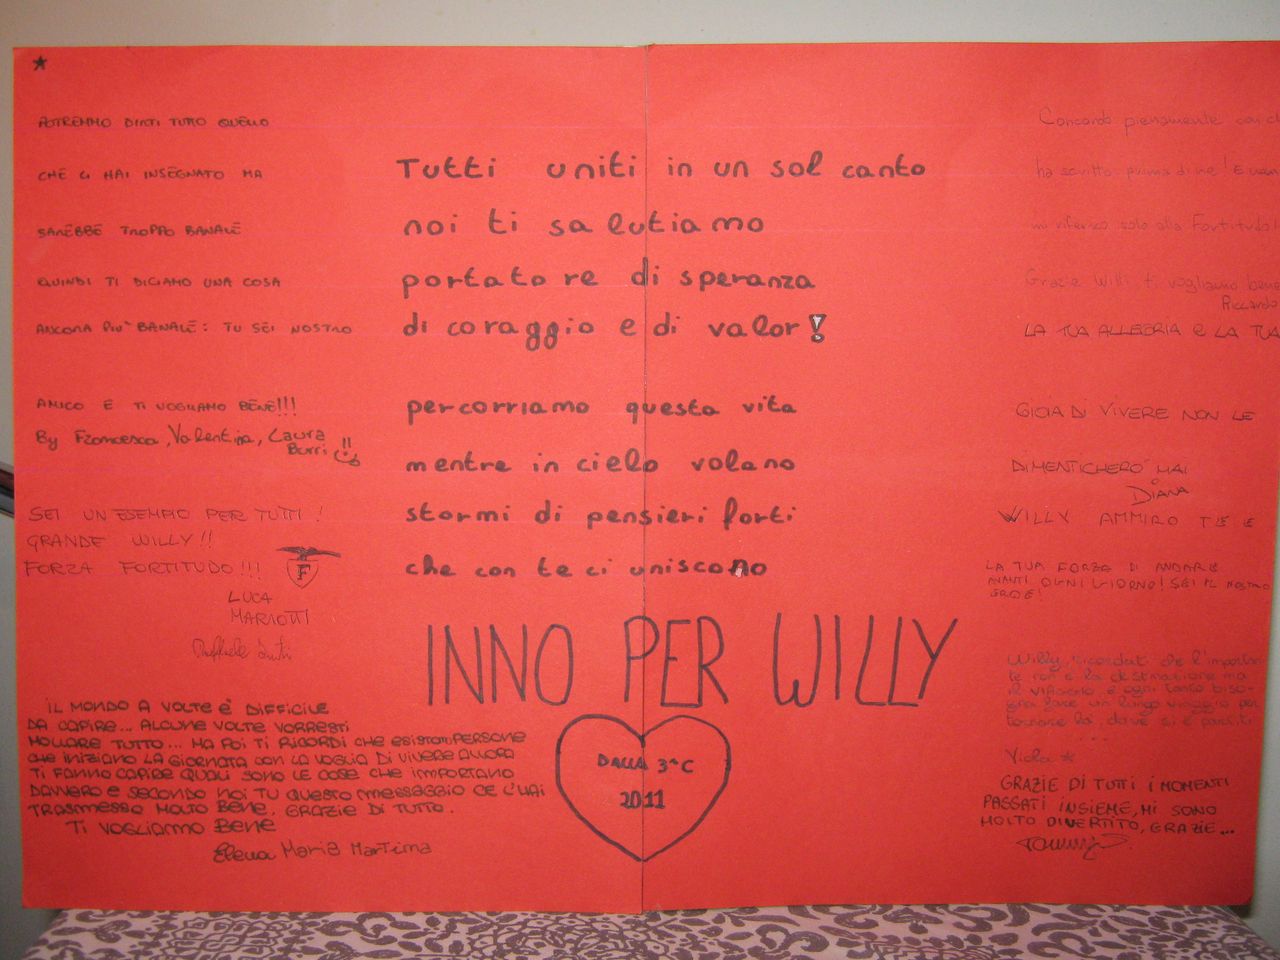 POTREMMO DIRTI TUTTO QUELLO
CHE CI HAI INSEGNATO MA
SAREBBE TROPPO BANALE
QUINDI TI DICIAMO UNA COSA
ANCORA PIU' BANALE: TU SEI NOSTRO
AMICO E TI VOGLIAMO BENE!!!
By Francesca, Valentina, Laura
Burri
SEI UN ESEMPIO PER TUTTI!
GRANDE WILLY!!
FORZA FORTITUDO!!!
F
LUCA
MARIOTTI
Raffaele
IL MONDO A VOLTE E' DIFFICILE
DA CAPIRE... ALCUNE VOLTE VORRESTI
MOLLARE TUTTO... MA POI TI RICORDI CHE ESISTONO PERSONE
CHE INIZIANO LA GIORNATA CON LA VOGLIA DI VIVERE ALLORA
TI FANNO CAPIRE QUALI SONO LE COSE CHE IMPORTANO
DAVVERO E SECONDO NOI TU QUESTO MESSAGGIO CE L'HAI
TRASMESSO MOLTO BENE. GRAZIE DI TUTTO.
TI VOGLIAMO BENE
Elena Maria Martina
Tutti uniti in un sol canto
noi ti salutiamo
portatore di speranza
di coraggio e di valor!
percorriamo questa vita
mentre in cielo volano
stormi di pensieri forti
che con te ci uniscono
INNO PER WILLY
DALLA 3^C
2011
Concordo pienamente con
ha scritto prima di me! E non
mi riferisco solo alla Fortitudo!
Grazie Willi, ti vogliamo bene
Riccardo
LA TUA ALLEGRIA E LA TUA
GIOIA DI VIVERE NON LE
DIMENTICHERO' MAI
DIANA
WILLY AMMIRO TE E
LA TUA FORZA DI ANDARE
AVANTI OGNI GIORNO! SEI IL NOSTRO
EROE!
Willy, ricordati che l'importan-
te non è la destinazione ma
il viaggio, e ogni tanto biso-
gna fare un lungo viaggio per
tornare là, dove si è partiti
...
Viola *
GRAZIE DI TUTTI I MOMENTI
PASSATI INSIEME, MI SONO
MOLTO DIVERTITO, GRAZIE...